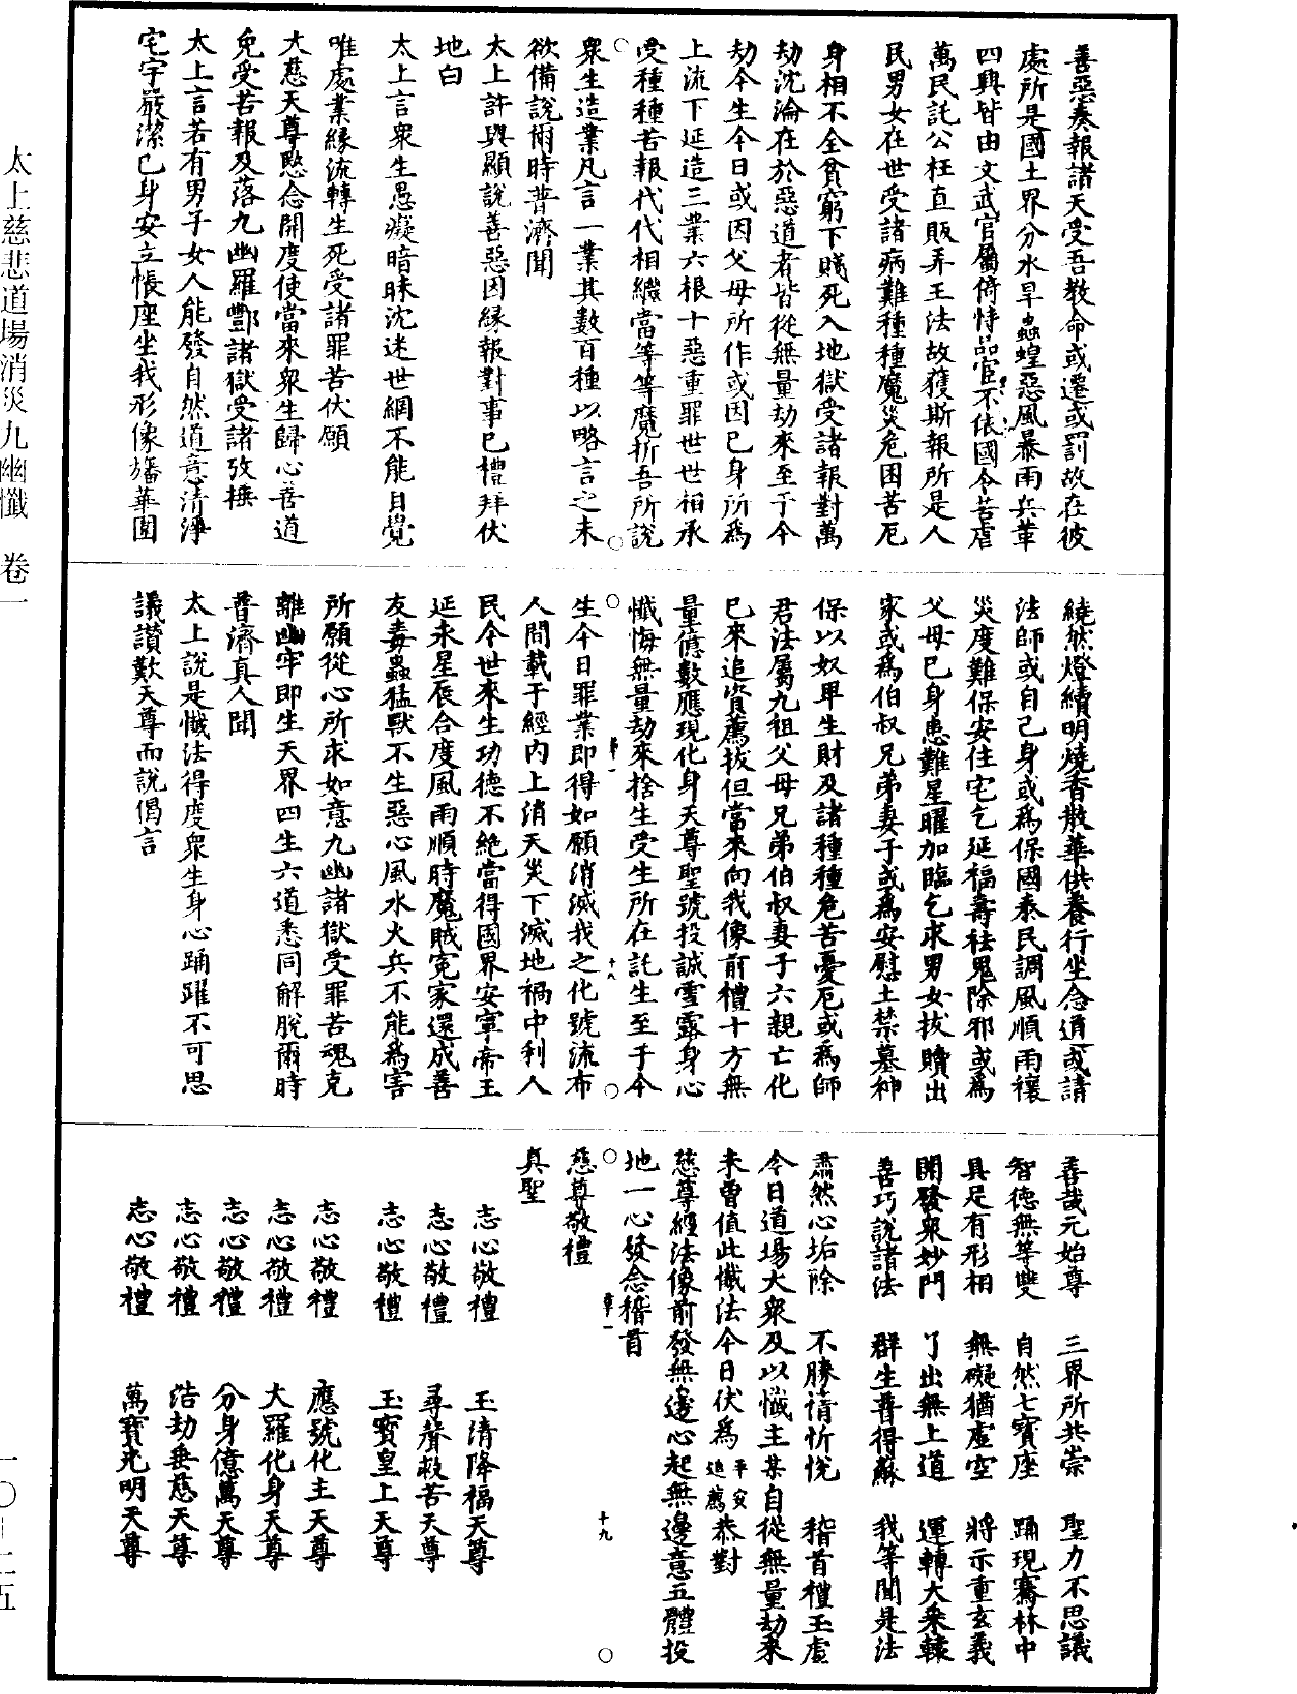 善惡奏報諸天受吾教命或遷或罰故在彼
處所是國土界分水旱蟲蝗惡風暴雨兵革
四興皆由文武官屬倚恃品官不依國令苦虐
萬民託公枉直販弄王法故獲斯報所是人
民男女在世受諸病難種種魔災危困苦厄
身相不全貧窮下賤死入地獄受諸報對萬
劫沈淪在於惡道者皆從無量劫來至于今
劫今生今日或因父母所作或因己身所為
上流下延造三業六根十惡重罪世世相承
受種種苦報代代相繼當等等魔折吾所說
衆生造業凡言一業其數百種以略言之未
欲備說爾時普濟聞
太上許與顯說善惡因緣報對事已禮拜伏
地白
太上言衆生愚癡暗昧沈迷世網不能自覺
唯處業緣流轉生死受諸罪苦伏願
大慈天尊愍念開度使當來衆生歸心善道
免受苦報及落九幽羅酆諸獄受諸攷捶
太上言若有男子女人能發自然道意清淨
宅宇嚴潔己身安立帳座坐我形像旛華圍
繞然燈續明燒香散華供養行坐念道或請
法師或自己身或為保國泰民調風順雨禳
災度難保安住宅乞延福壽祛鬼除邪或為
父母己身患難星曜加臨乞求男女拔贖出
家或為伯叔兄弟妻子或為安慰土禁墓神
保以奴婢生財及諸種種危苦憂厄或為師
君法屬九祖父母兄弟伯叔妻子六親亡化
已來追資薦拔但當來向我像前禮十方無
量億數應現化身天尊聖號投誠雪露身心
懺悔無量劫來捨生受生所在託生至于今
生今日罪業即得如願消滅我之化號流布
人間載于經內上消天災下滅地禍中利人
民今世來生功德不絕當得國界安寧帝王
延永星辰合度風雨順時魔賊冤家還成善
友毒蟲猛獸不生惡心風水火兵不能為害
所願從心所求如意九幽諸獄受罪苦魂克
離幽牢即生天界四生六道悉同解脫爾時
普濟真人聞
太上說是懺法得度衆生身心踊躍不可思
議讚歎天尊而說偈言
善哉元始尊 三界所共崇 聖力不思議
智德無等雙 自然七寶座 踊現騫林中
具足有形相 無礙猶虛空 將示重玄義
開發衆妙門 了出無上道 運轉大乘轅
善巧說諸法 群生普得蘇 我等聞是法
肅然心垢除 不勝情忻悅 稽首禮玉虛
今日道場大衆及以懺主某自從無量劫來
未曾值此懺法今日伏為平安追薦恭對
慈尊經法像前發無邊心起無邊意五體投
地一心發念稽首
慈尊敬禮
真聖
志心敬禮 玉清降福天尊
志心敬禮 尋聲救苦天尊
志心敬禮 玉寶皇上天尊
志心敬禮 應號化主天尊
志心敬禮 大羅化身天尊
志心敬禮 分身億萬天尊
志心敬禮 浩劫垂慈天尊
志心敬禮 萬寶光明天尊
十八
十九
太上慈悲道場消災九幽懺 卷一
一〇—二五